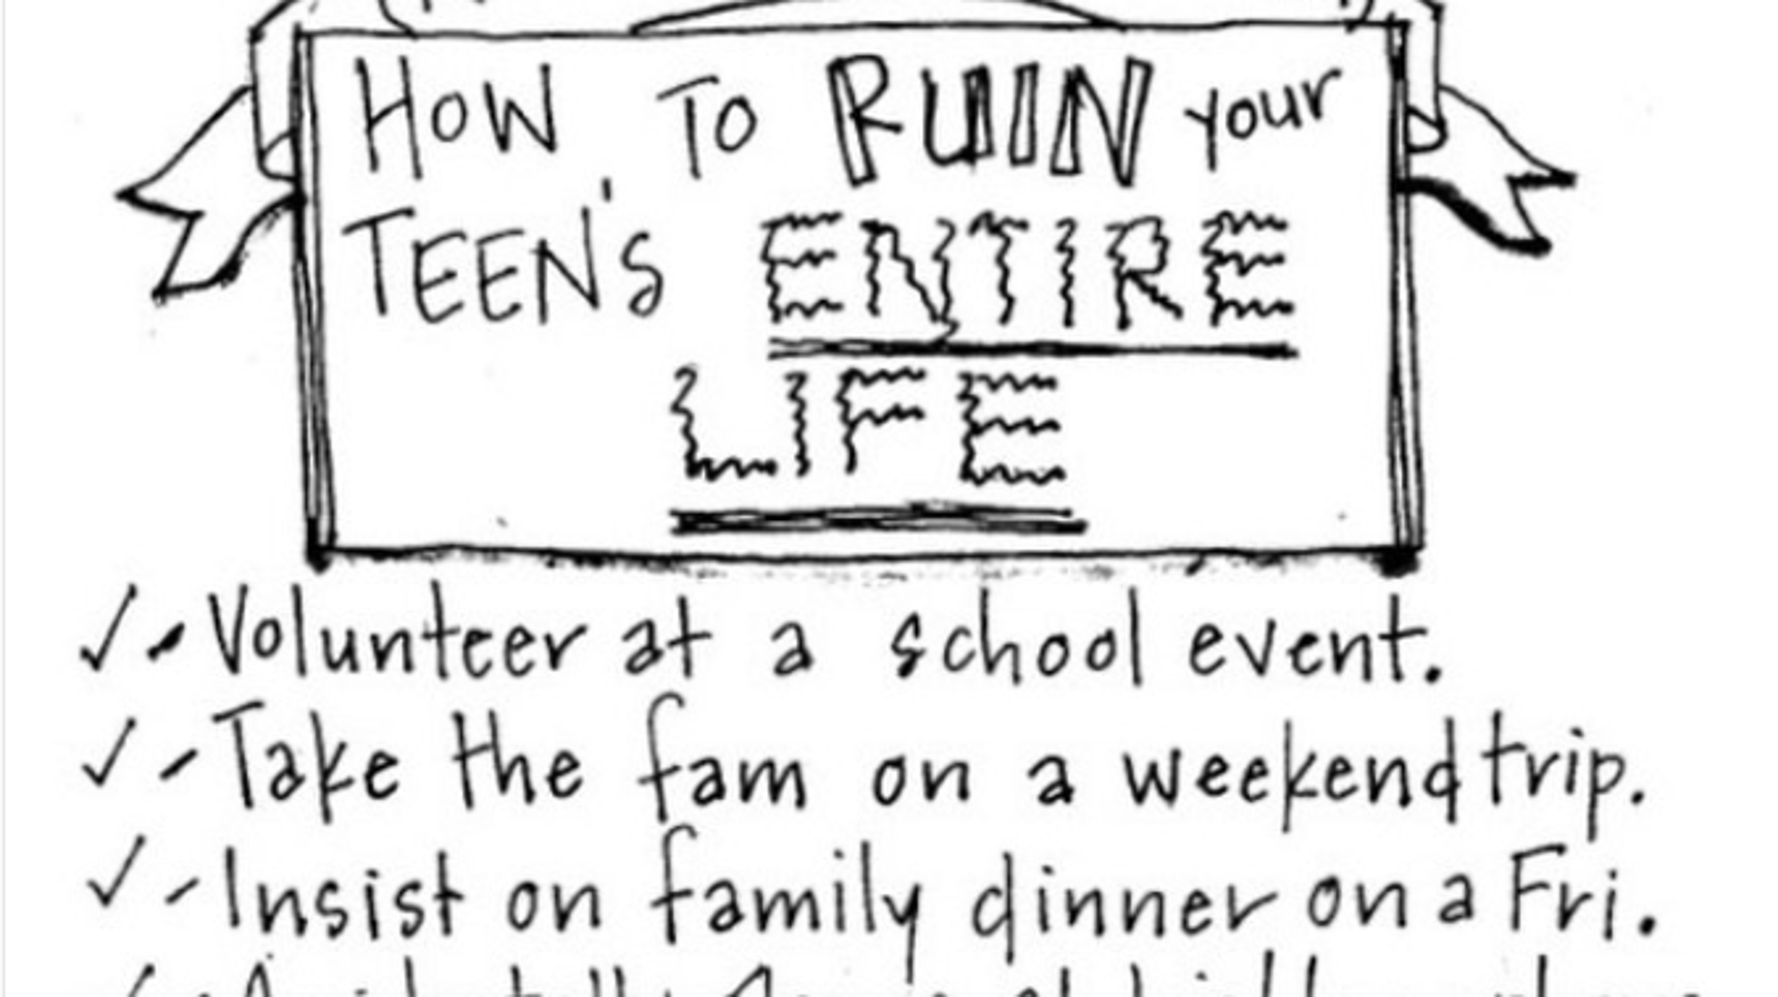 HOW TO RUIN your
TEEN'S ENTIRE
LIFE
✓ - Volunteer at a school event.
✓ - Take the fam on a weekend trip.
✓ - Insist on family dinner on a Fri.